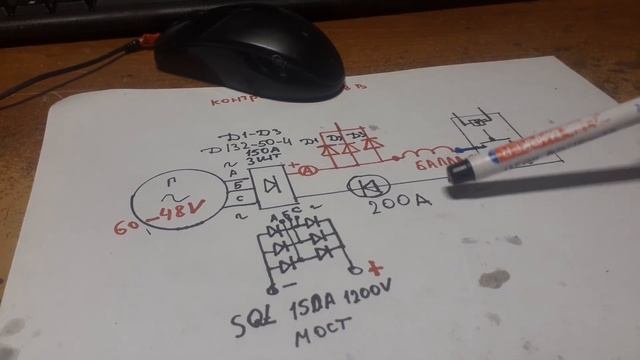 Д1-Д3
Д132-50-4
150А
3ШТ
Д1 Д2 Д3
+
А
~
А
Б
С
~
Г
~
60-48V
200А
А Б С ~
-
+
SQL 150A 1200V
МОСТ